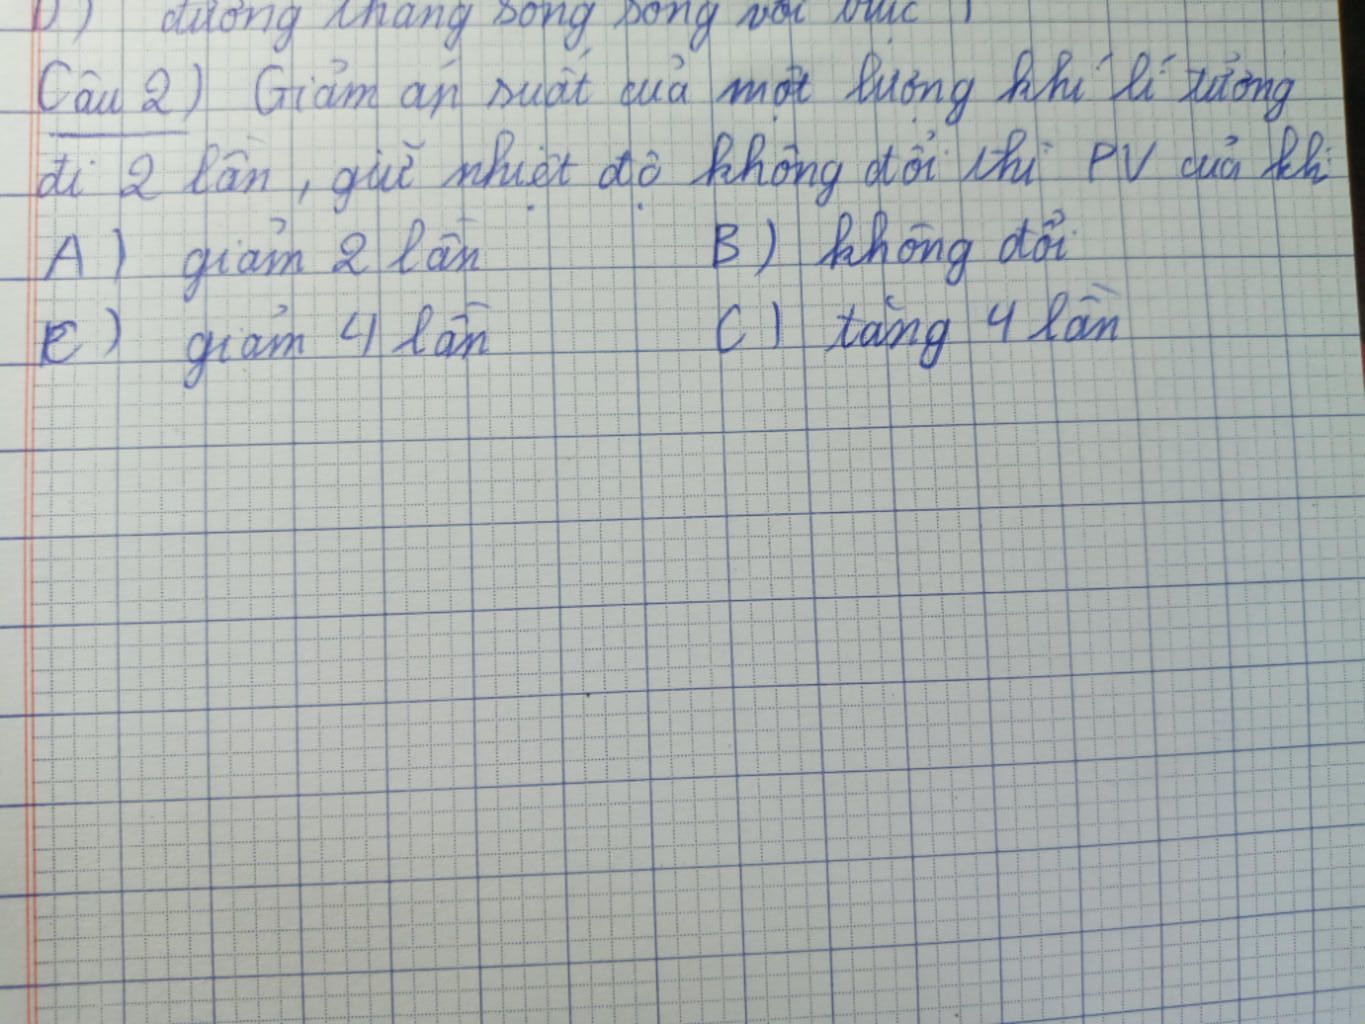 D) đường thẳng song song với trục
Câu 2) Giảm áp suất của một lượng khí lí tưởng
đi 2 lần, giữ nhiệt độ không đổi thì PV của khí
A) giảm 2 lần B) không đổi
C) giảm 4 lần C) tăng 4 lần